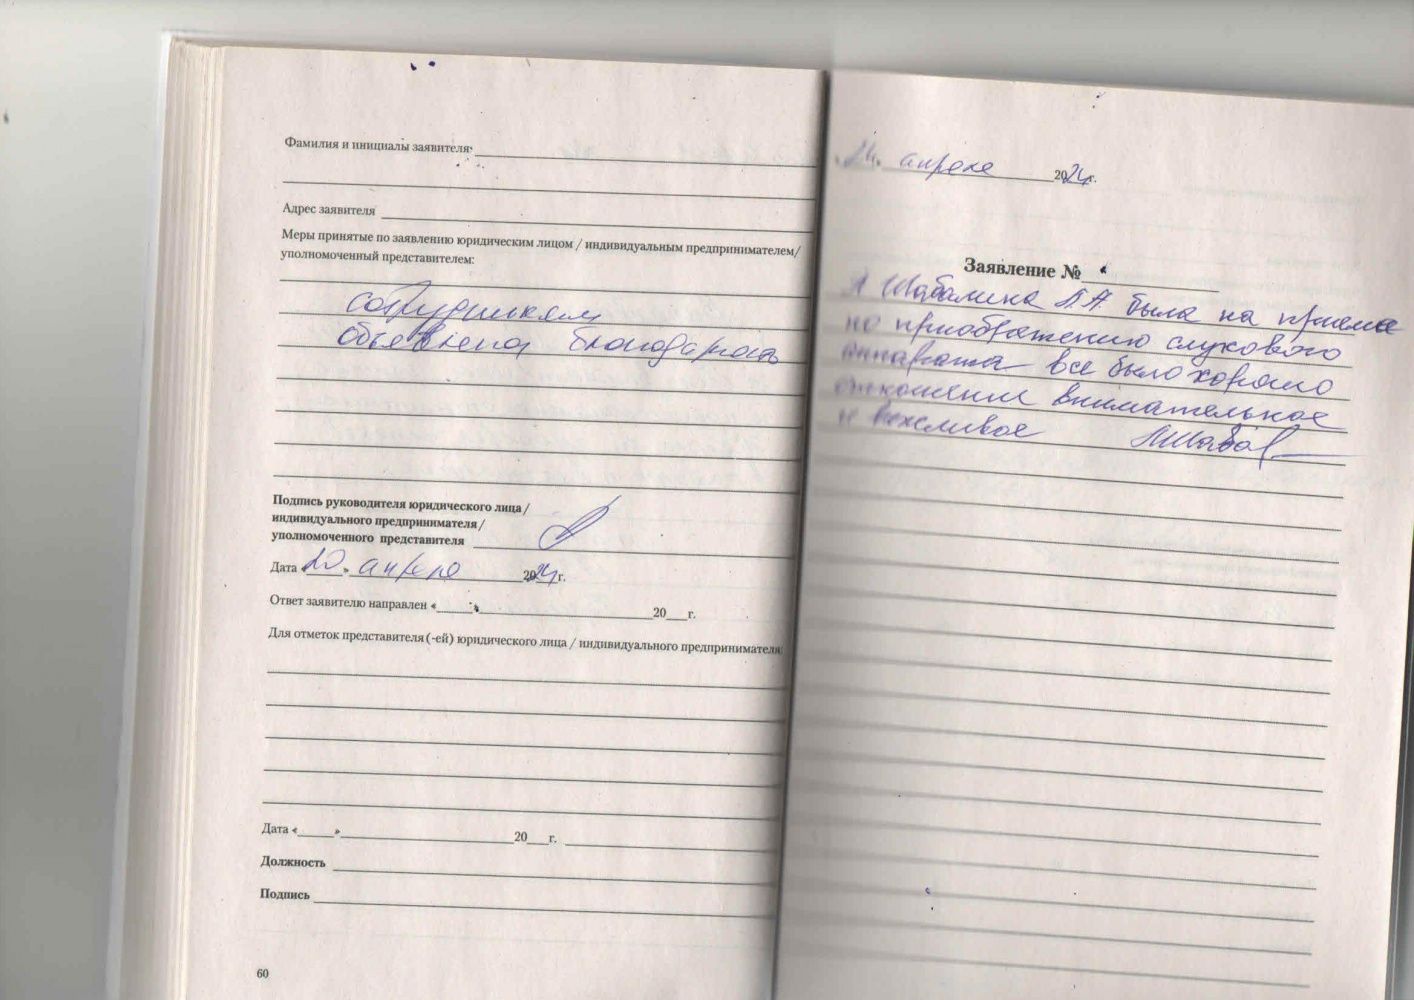 Фамилия и инициалы заявителя:
Адрес заявителя
Меры принятые по заявлению юридическим лицом / индивидуальным предпринимателем/
уполномоченный представителем:
сотрудникам
объявлена благодарность
Подпись руководителя юридического лица /
индивидуального предпринимателя /
уполномоченного представителя
Дата «20» апреля 2024г.
Ответ заявителю направлен «____» 20___г.
Для отметок представителя (-ей) юридического лица / индивидуального предпринимателя:
Дата «_____» 20___г.
Должность
Подпись
60
24. апреля 2024г.
Заявление №
Я Шабалина Л А была на приеме
по приображению слухового
аппарата все было хорошо
отношении внимательное
и вежливое